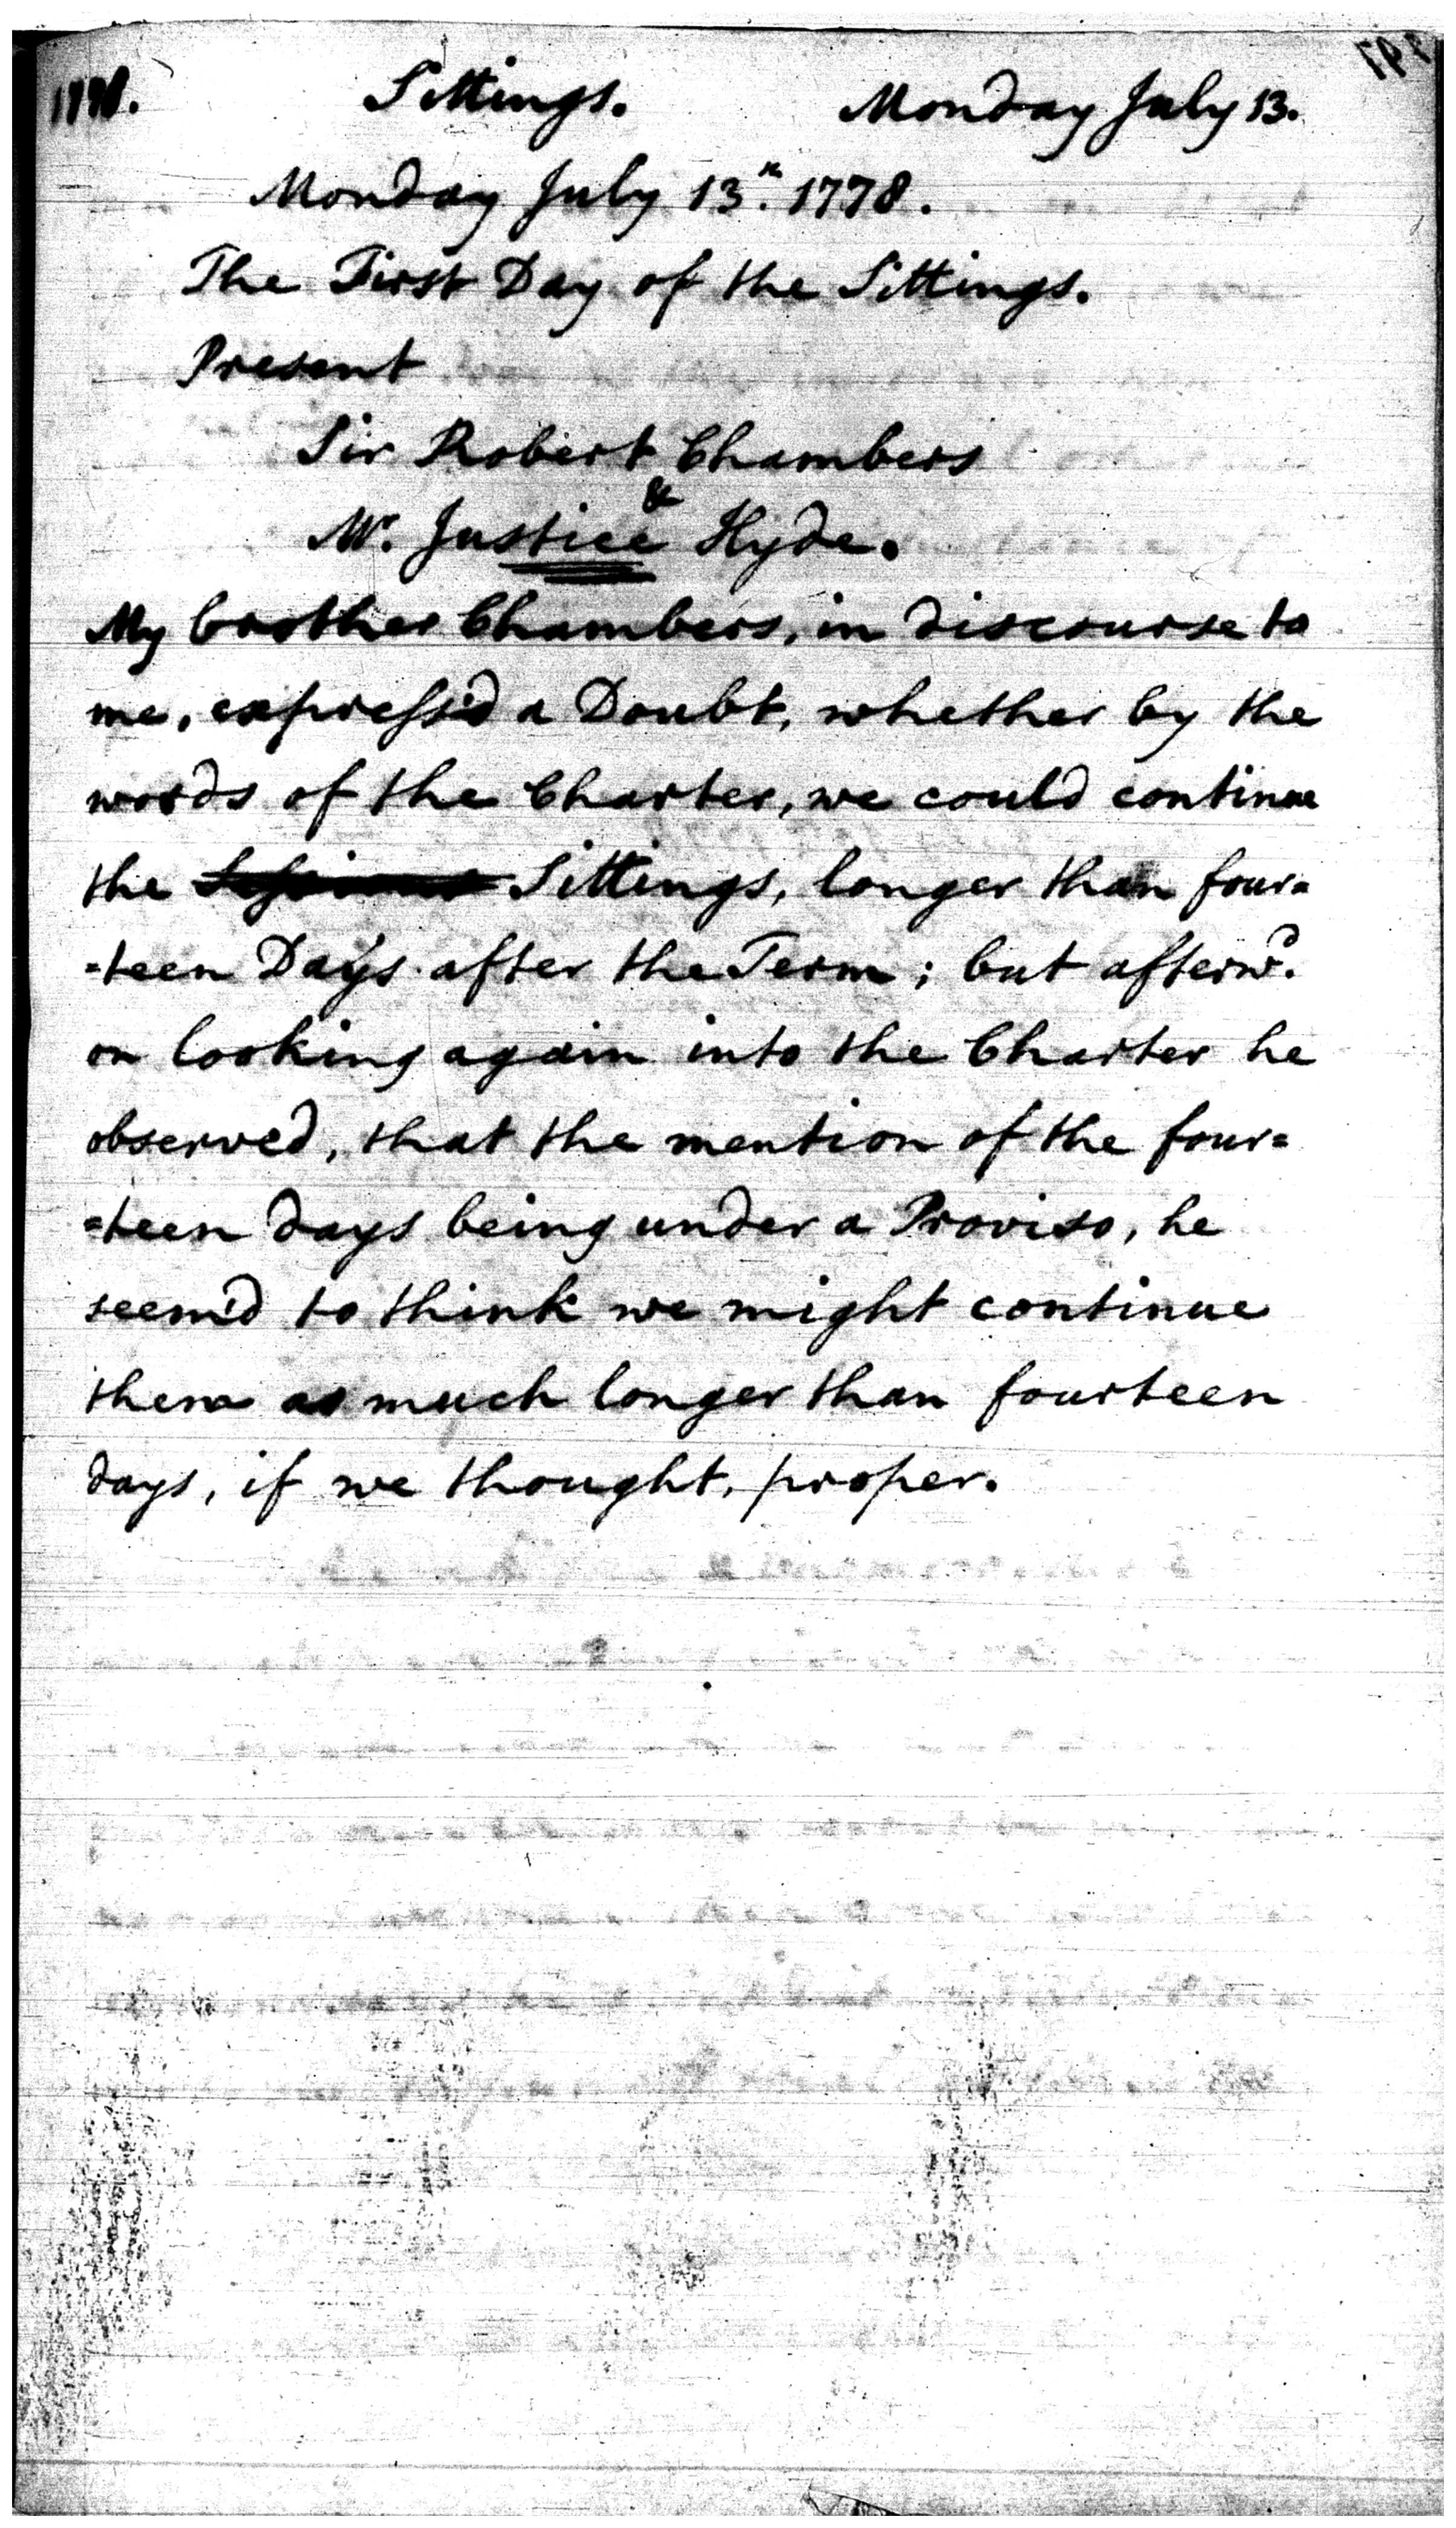 1778. Sittings. Monday July 13.
Monday July 13th. 1778.
The First Day of the Sittings.
Present
Sir Robert Chambers
&
Mr. Justice Hyde.
My brother Chambers, in discourse to
me, express'd a Doubt, whether by the
words of the Charter, we could continue
the Sittings, longer than four=
=teen Days after the Term; but afterwd.
on looking again into the Charter he
observed, that the mention of the four=
=teen days being under a Proviso, he
seem'd to think we might continue
them as much longer than fourteen
days, if we thought, proper.